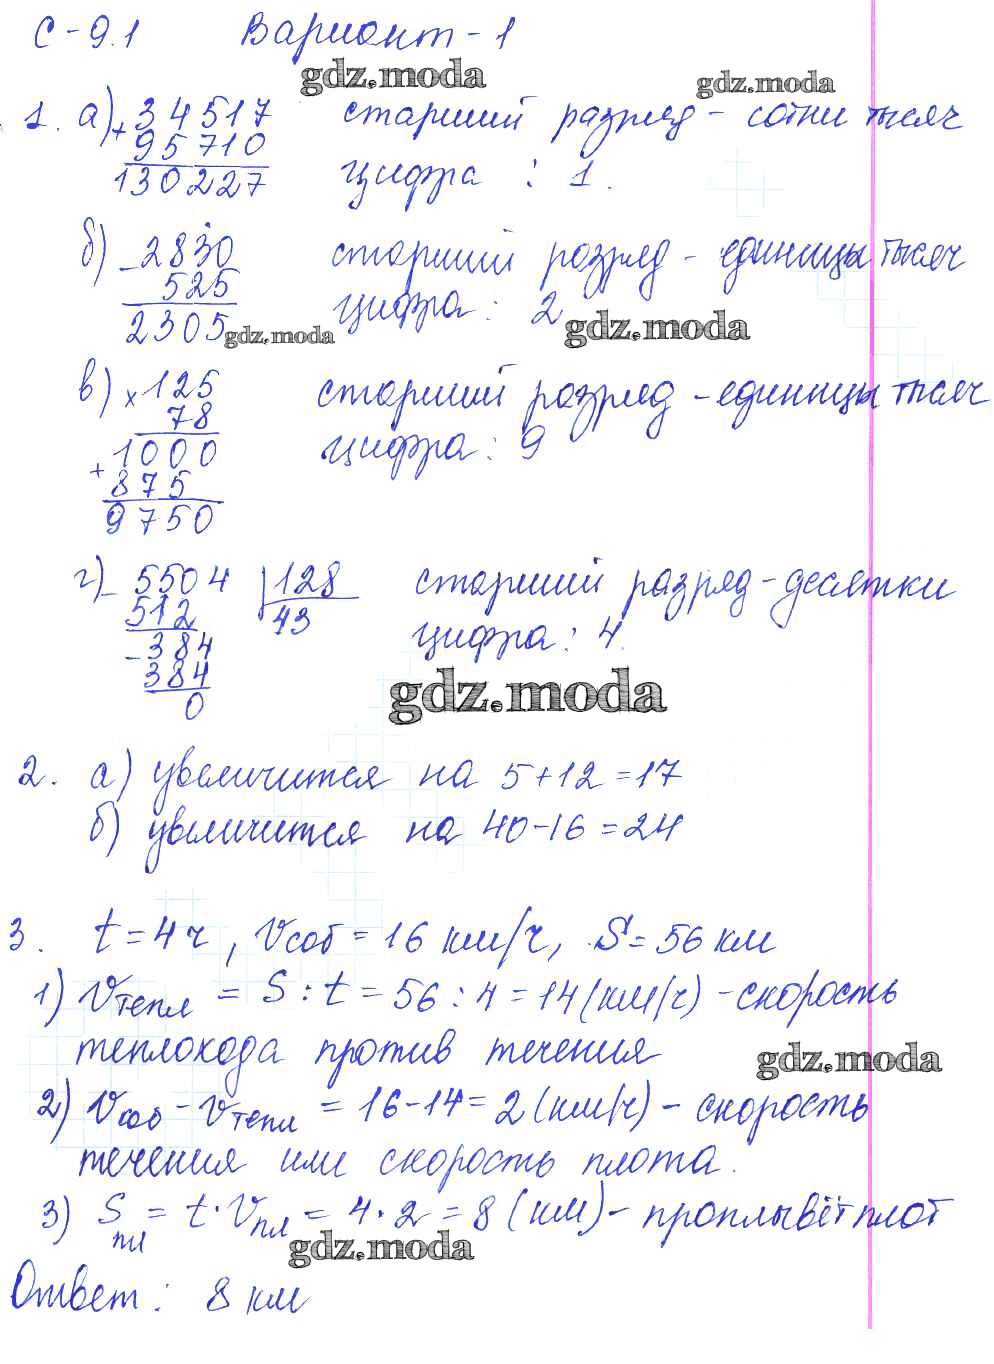 С-9.1 Вариант-1
gdz.moda gdz.moda
1. а) + 34517 старший разряд - сотни тысяч
95710
130227 цифра : 1.
б) - 2830 старший разряд - единицы тысяч
525 цифра : 2
2305 gdz.moda gdz.moda
в) × 125 старший разряд - единицы тысяч
78 цифра : 9
1000
+ 875
9750
г) - 5504 128 старший разряд - десятки
512 43 цифра : 4.
- 384
384 gdz.moda
0
2. а) увеличится на 5+12=17
б) увеличится на 40-16=24
3. t=4ч, Vсоб=16 км/ч, S=56 км
1) Vтепл = S:t = 56:4=14(км/ч) - скорость
теплохода против течения gdz.moda
2) Vсоб - Vтепл = 16-14=2 (км/ч) - скорость
течения или скорость плота.
3) Sпл = t·Vпл = 4·2=8 (км) - проплывёт плот
gdz.moda
Ответ: 8 км